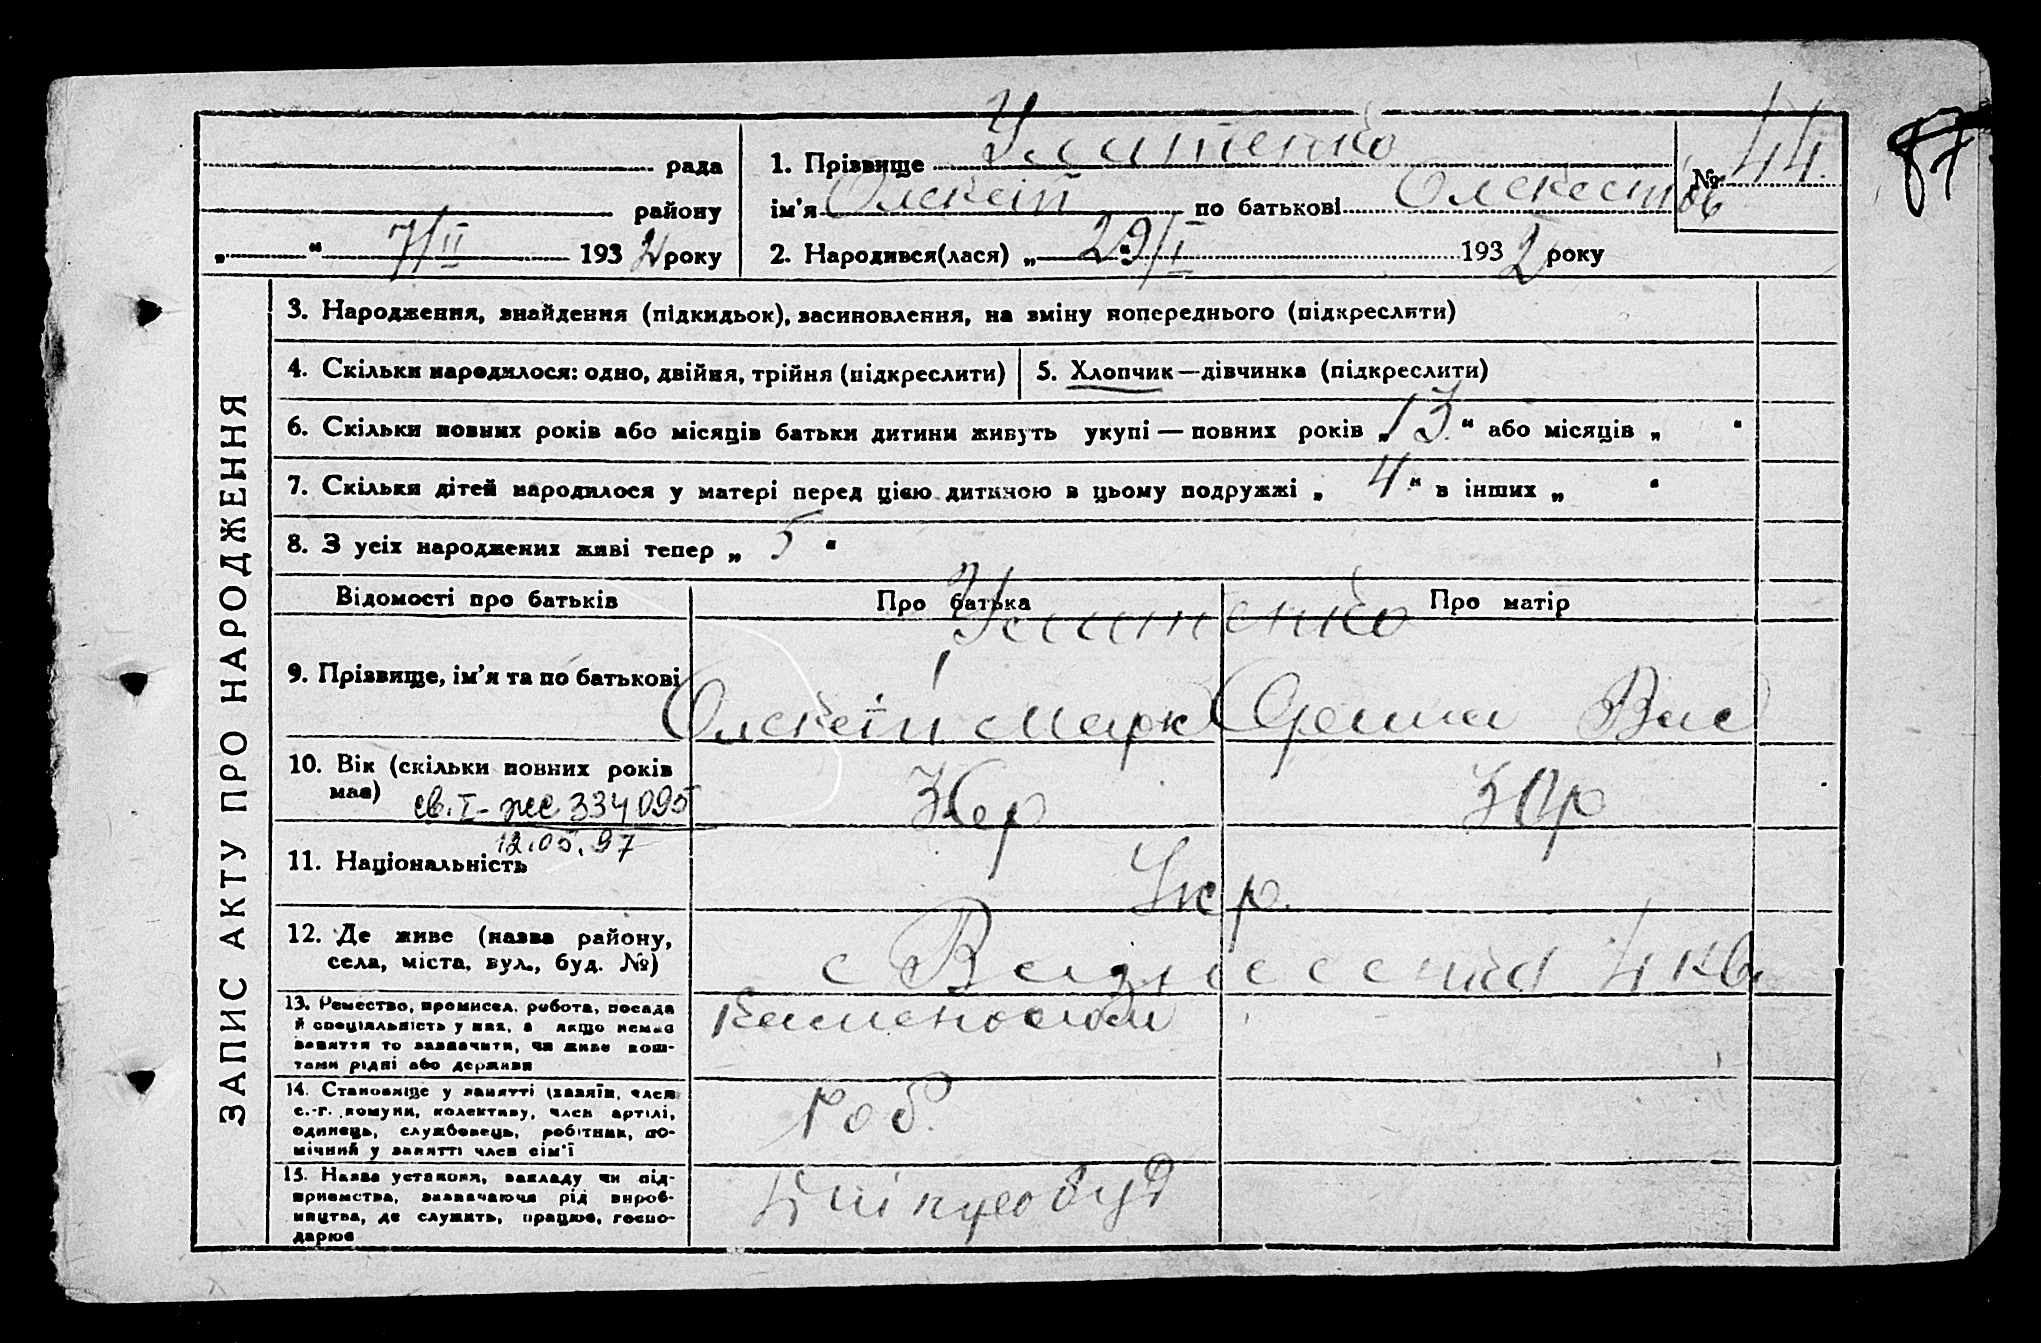 рада
1. Прізвище Улитенко
№ 44.
87
району
ім'я Олексій по батькові Олексієв
„ “ 7/II 1932 року
2. Народився(лася) „ 29/I 1932 року
ЗАПИС АКТУ ПРО НАРОДЖЕННЯ
3. Народження, знайдення (підкидьок), засиновлення, на зміну попереднього (підкреслити)
4. Скільки народилося: одно, двійня, трійня (підкреслити)
5. Хлопчик—дівчинка (підкреслити)
6. Скільки повних років або місяців батьки дитини живуть укупі — повних років „ 13 “ або місяців „ “
7. Скільки дітей народилося у матері перед цією дитиною в цьому подружжі „ 4 “ в інших „ “
8. З усіх народжених живі тепер „ 5 “
Відомості про батьків
Про батька
Про матір
Улитенко
9. Прізвище, ім'я та по батькові
Олексій Марк
Орина Вас
10. Вік (скільки повних років
має)
св. I-жс 334095
12.05.97
11. Національність
Укр.
12. Де живе (назва району,
села, міста, вул., буд. №)
с 4 кв
13. Ремество, промисел, робота, посада
й спеціяльність у них, а якщо немає
заняття то зазначити, чи живе кош-
тами рідні або держави
14. Становище у занятті (хазяїн, член
с.-г. комуни, колективу, член артілі,
одинець, службовець, робітник, по-
мічний у занятті член сім'ї
Роб.
15. Назва установи, закладу чи під-
приємства, зазначаючи рід вироб-
ництва, де служить, працює, госпо-
дарює